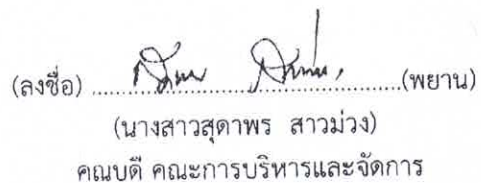 (ลงชื่อ) ........................................(พยาน)
(นางสาวสุดาพร สาวม่วง)
คณบดี คณะการบริหารและจัดการ